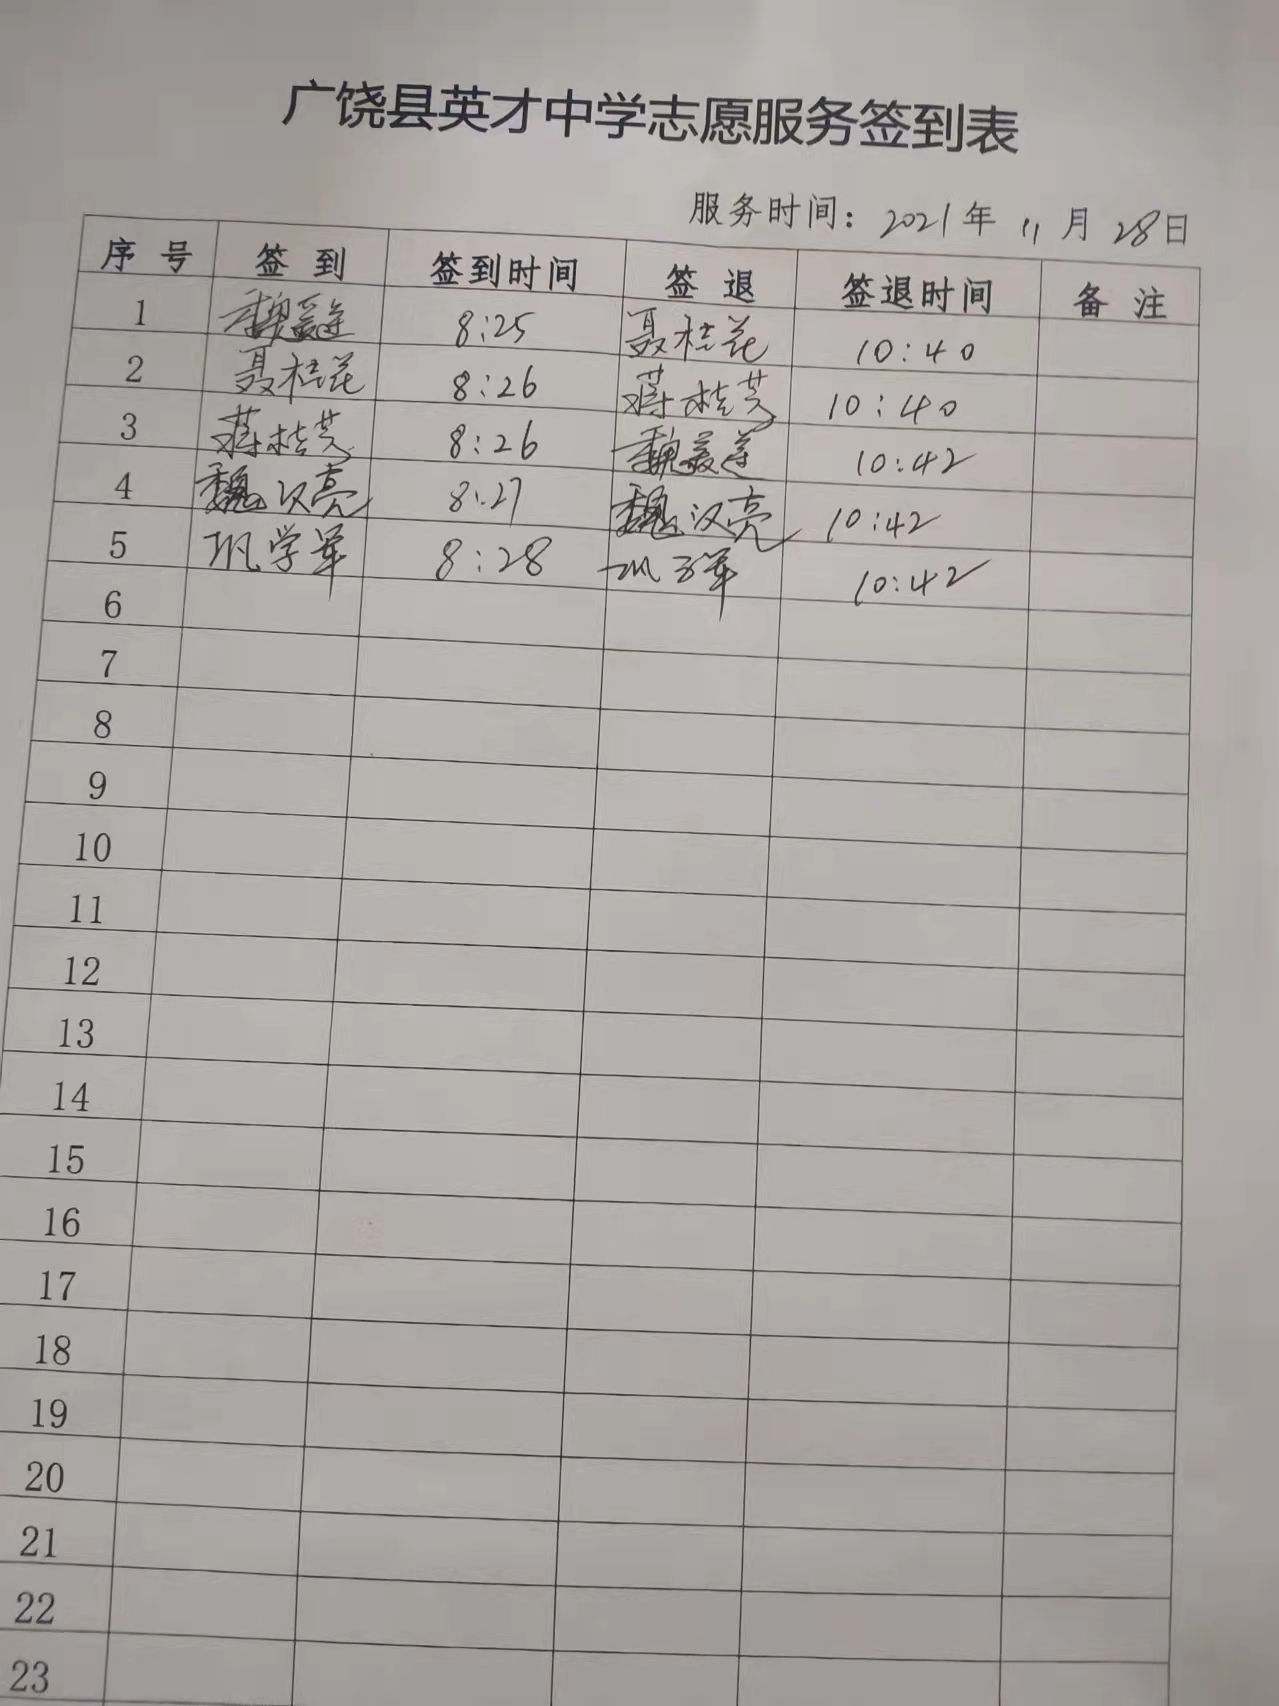 广饶县英才中学志愿服务签到表
服务时间：2021年 11月 28日
序 号 签 到 签到时间 签 退 签退时间 备 注
1 魏爱莲 8:25 聂桂花 10:40
2 聂桂花 8:26 蒋桂芝 10:40
3 蒋桂芝 8:26 魏爱莲 10:42
4 魏汉亮 8:27 魏汉亮 10:42
5 巩学军 8:28 巩学军 10:42
6
7
8
9
10
11
12
13
14
15
16
17
18
19
20
21
22
23